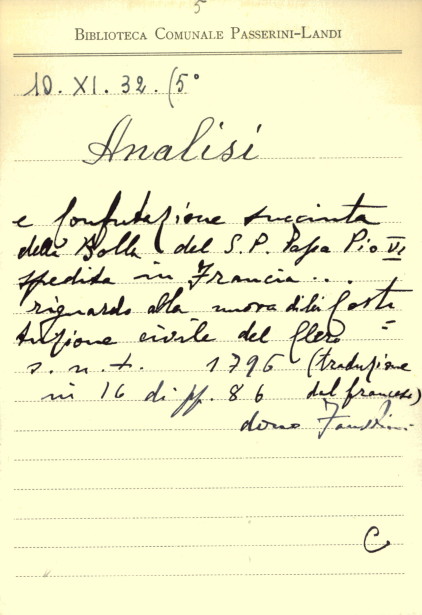 5
BIBLIOTECA COMUNALE PASSERINI-LANDI
10. XI. 32. (5°
Analisi
e Confutazione succinta
della Bolla del S. P. Papa Pio VI
spedita in Francia...
riguardo alla nuova di lei Costi
tuzione civile del Clero =
s. n. t. 1796 (traduzione
in 16 di pp. 86 dal francese)
dono
C